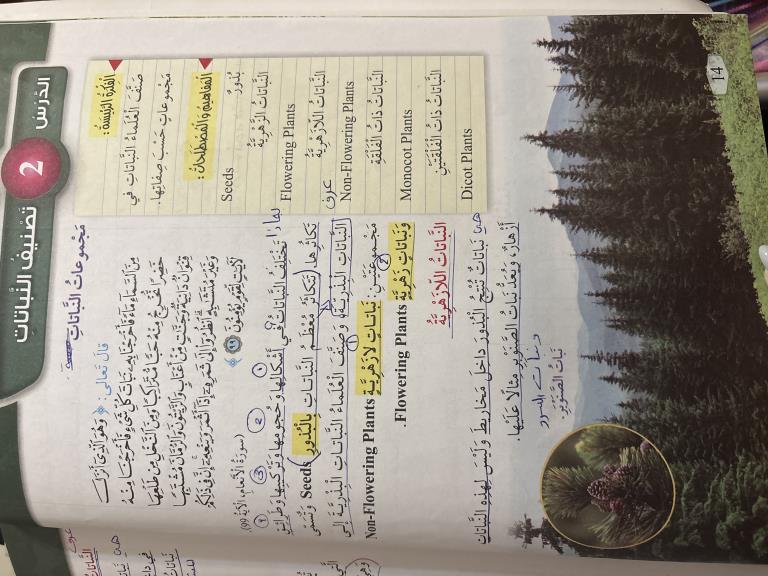 الدَّرْسُ 2
تَصْنيفُ النَّباتاتِ
الْفِكْرَةُ الرَّئيسَةُ:
صَنَّفَ الْعُلَماءُ النَّباتاتِ في
مَجْموعاتٍ حَسَبَ صِفاتِها.
الْمَفاهيمُ وَالْمُصْطَلَحاتُ:
بُذورٌ
Seeds
النَّباتاتُ الزَّهْرِيَّةُ
Flowering Plants
النَّباتاتُ اللّازَهْرِيَّةُ
Non-Flowering Plants
النَّباتاتُ ذاتُ الْفَلْقَةِ
Monocot Plants
النَّباتاتُ ذاتُ الْفَلْقَتَيْنِ
Dicot Plants
مَجْموعاتُ النَّباتاتِ
قالَ تَعالى: ﴿ وَهُوَ الَّذِي أَنْزَلَ
مِنَ السَّمَاءِ مَاءً فَأَخْرَجْنَا بِهِ نَبَاتَ كُلِّ شَيْءٍ فَأَخْرَجْنَا مِنْهُ
خَضِرًا نُخْرِجُ مِنْهُ حَبًّا مُتَرَاكِبًا وَمِنَ النَّخْلِ مِنْ طَلْعِهَا
قِنْوَانٌ دَانِيَةٌ وَجَنَّاتٍ مِنْ أَعْنَابٍ وَالزَّيْتُونَ وَالرُّمَّانَ مُشْتَبِهًا
وَغَيْرَ مُتَشَابِهٍ انْظُرُوا إِلَى ثَمَرِهِ إِذَا أَثْمَرَ وَيَنْعِهِ إِنَّ فِي ذَلِكُمْ
لَآيَاتٍ لِقَوْمٍ يُؤْمِنُونَ ٩٩ ﴾ (سورَةُ الْأَنْعامِ، الْآيَةُ 99)
لماذا
تَخْتَلِفُ النَّباتاتُ في أَشْكالِها وَحُجومِها وَتَرْكيبِها وَطَرائِقِ
1 2 3 4
تَكاثُرِها، تَتَكاثَرُ مُعْظَمُ النَّباتاتِ بِالْبُذورِ Seeds وَتُسَمّى
النَّباتاتِ الْبِذْرِيَّةَ، وَصَنَّفَ الْعُلَماءُ النَّباتاتِ الْبِذْرِيَّةَ إِلى
عرف
مَجْموعَتَيْنِ: نَباتاتٍ لازَهْرِيَّةٍ Non-Flowering Plants
وَنَباتاتٍ زَهْرِيَّةٍ Flowering Plants.
1 2
النَّباتاتُ اللّازَهْرِيَّةُ
هي نَباتاتٌ تُنْتِجُ الْبُذورَ داخِلَ مَخاريطَ وَلَيْسَ لِهذِهِ النَّباتاتِ
أَزْهارٌ، وَيُعَدُّ نَباتُ الصَّنَوْبَرِ مِثالًا عَلَيْها.
نَباتُ الصَّنَوْبَرِ.
14